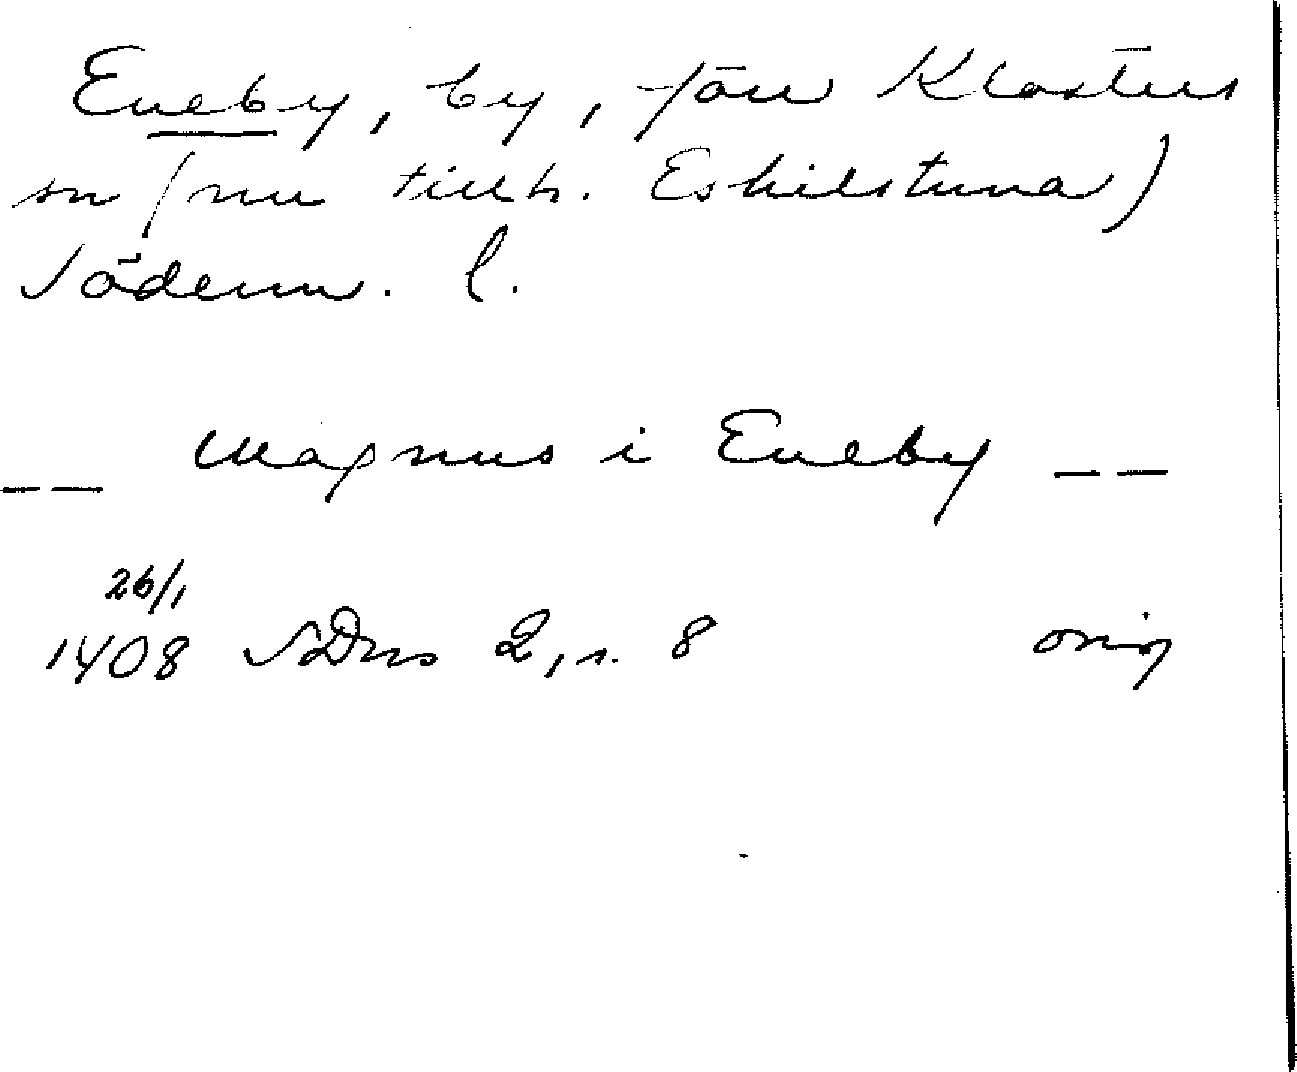 Eneby, by, förr Klosters
sn (nu tillh. Eskilstuna)
Söderm. l.
-- Magnus i Eneby --
26/1
1408 SDns 2, s. 8 orig